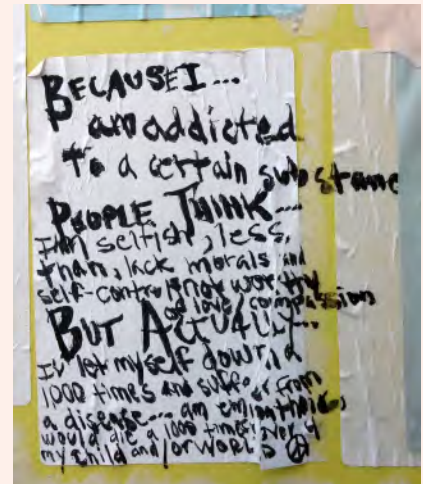 BECAUSE I...
am addicted
to a certain substance
PEOPLE THINK...
I am selfish, less,
than, lack morals and
self-control & not worthy
of love/compassion
BUT ACTUALLY...
Iv let myself down, a
1000 times and suffer from
a disease... am
would die a 1000 times over 4
my child and/or WORLD